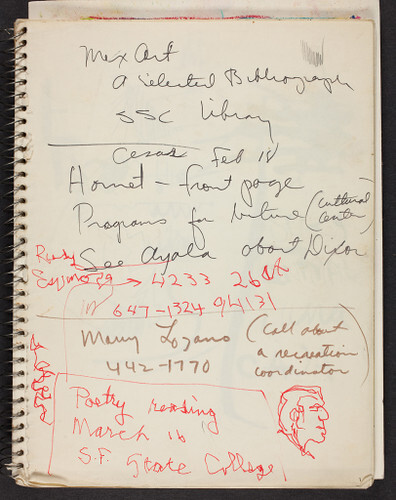 Mex Art
A Selected Bibliography
SSC Library
Cesar Feb 18
Hornet - front page
Programs for future (cultural center)
See Ayala about Dixon
Rudy
Espinoza → 4233 26th
647-1324 94131
Manny Lozano (Call about
442-1770 a recreation
coordinator)
Poetry reading
March 16
S.F. State College